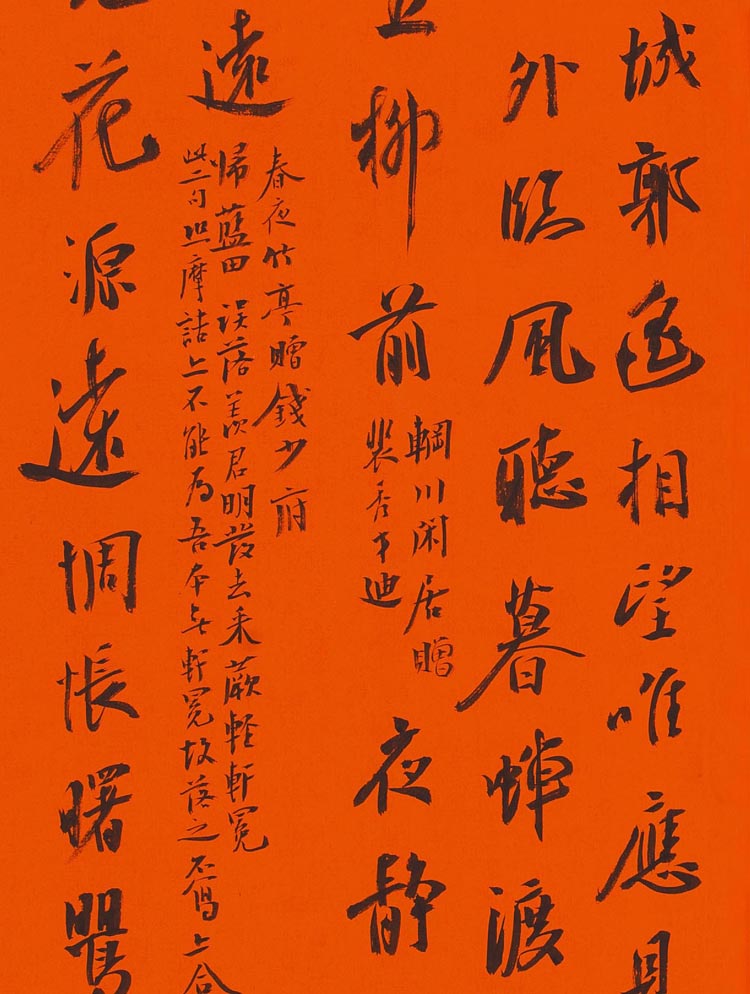 城郭遥相望唯應見
外臨風聽暮蟬渡
五柳前
輞川閑居贈
裴秀才迪
夜静
遠
春夜竹亭贈錢少府
帰藍田 误落羨君明發去采蕨軽軒冕
此二句照摩詰上不能为吾本无軒冕故落之不寫上合
花源遠惆悵曙